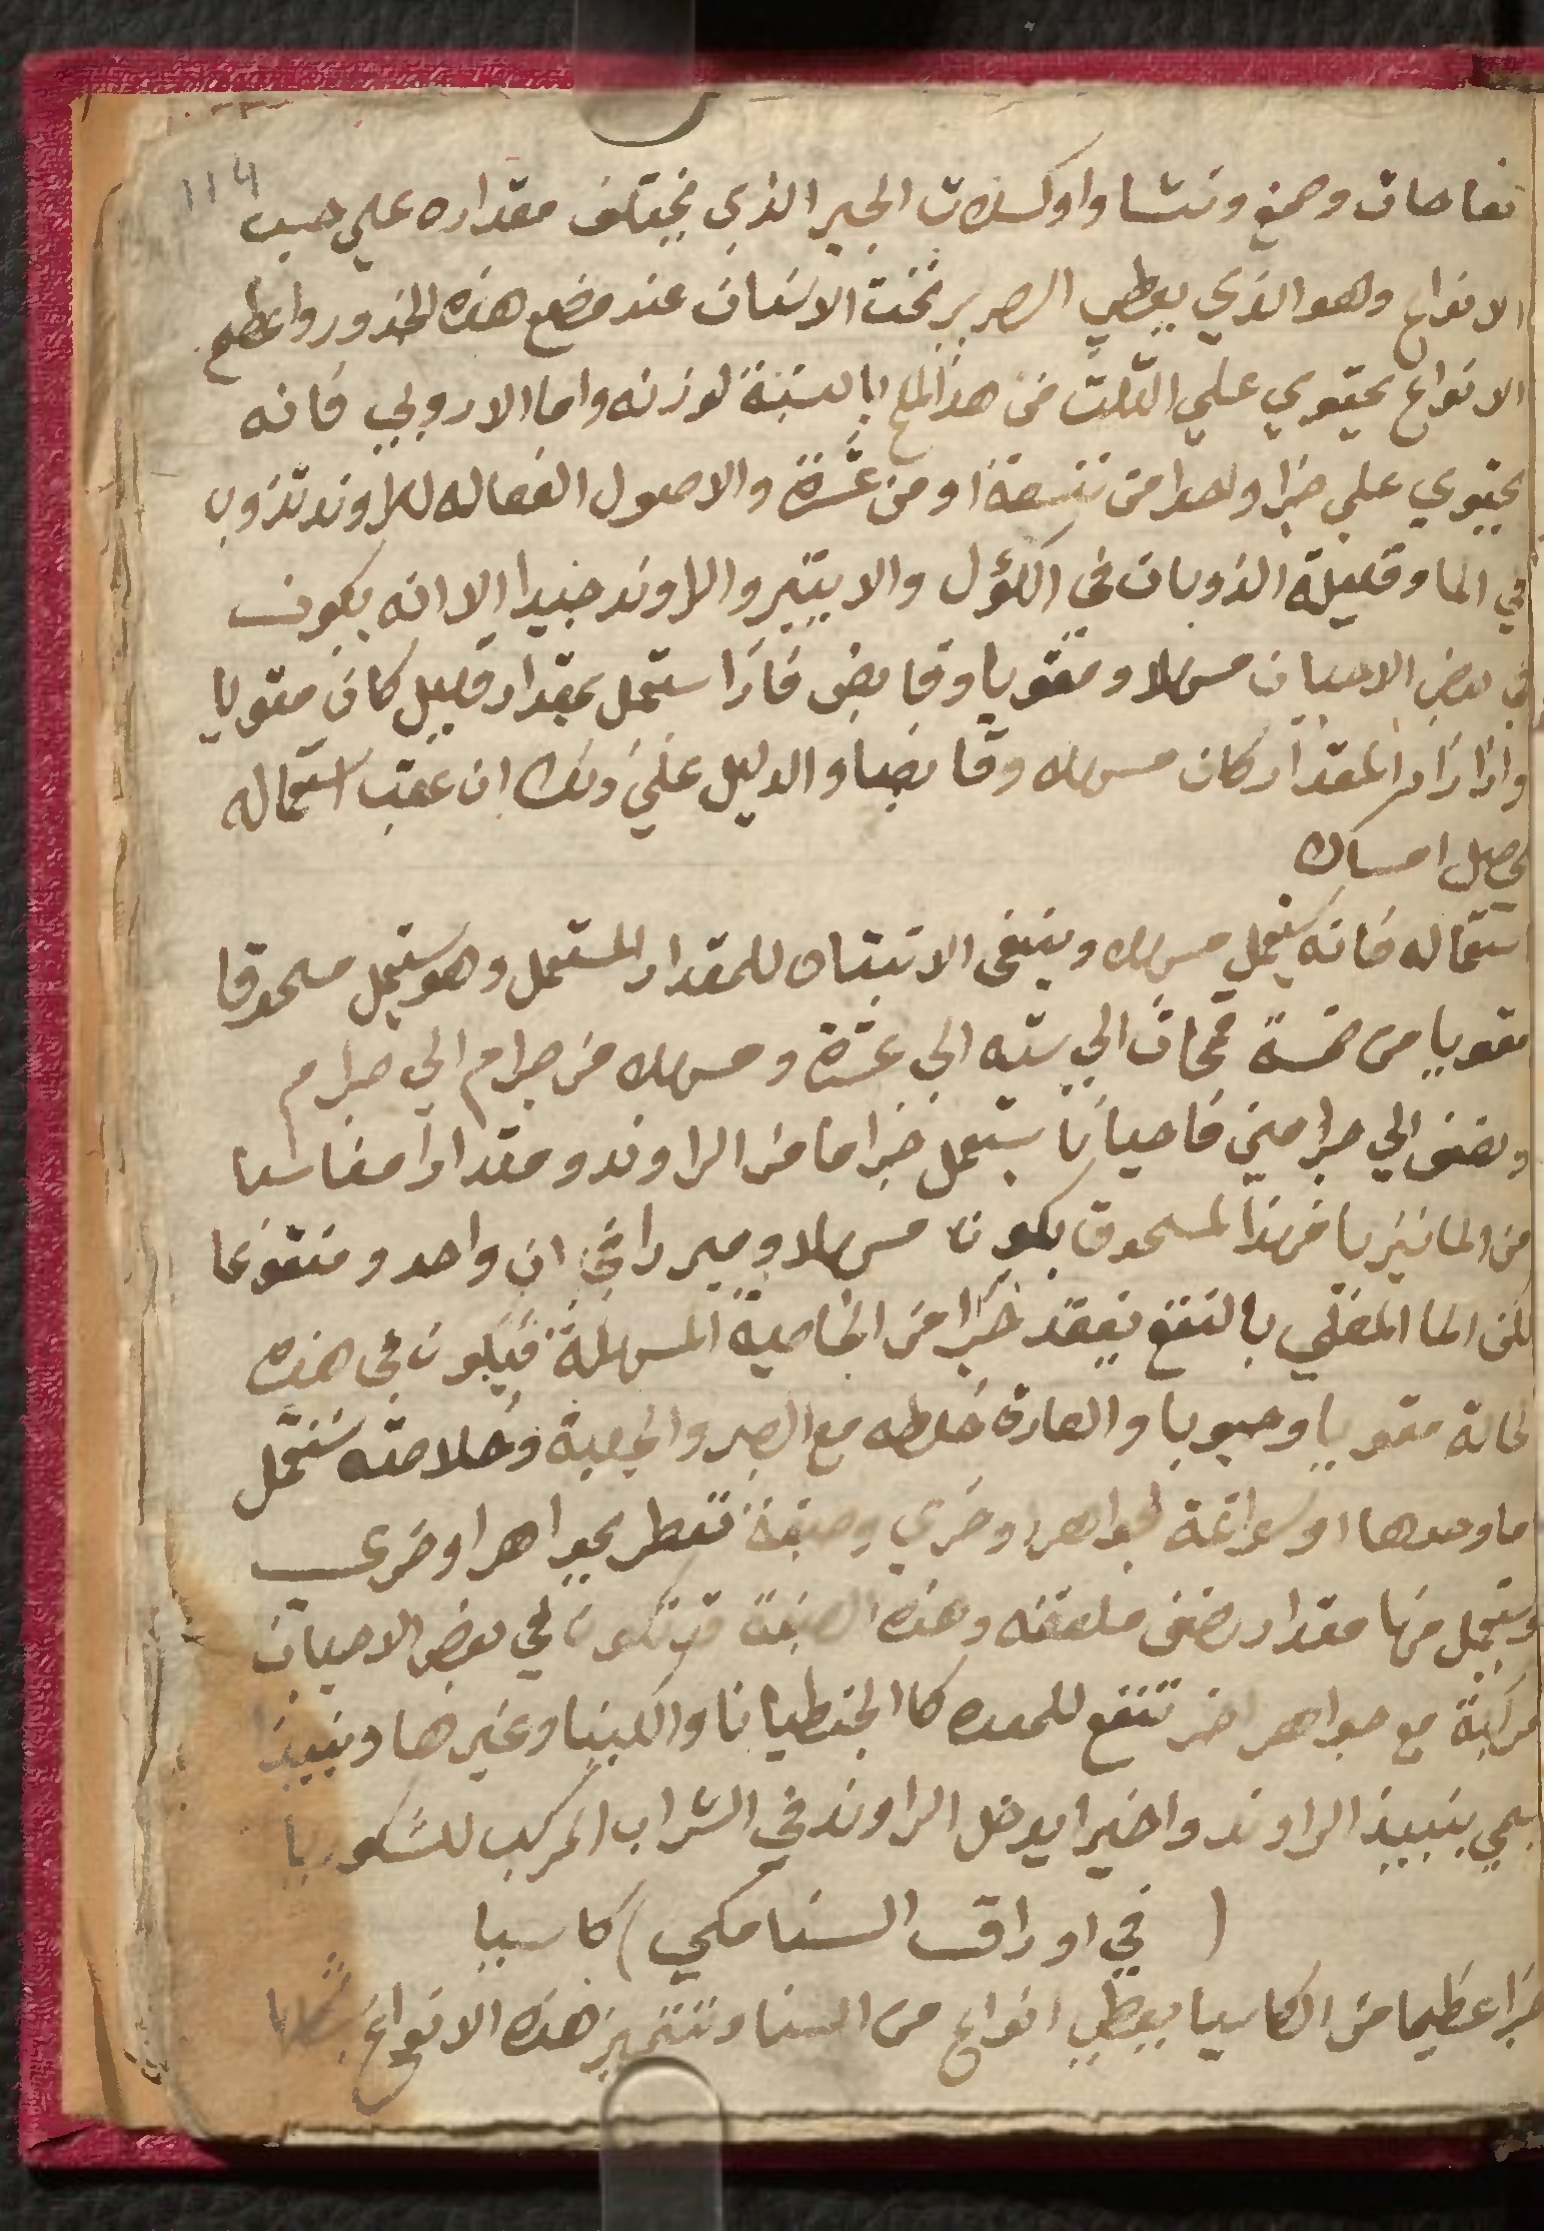 114
تفاحات وصمغ ونشا واوكسلات الجير الذي يختلف مقداره علي حسب
الانواع وهو الذي يعطي الصرير تخت الاسنان عند مضغ هذه الجذور واعظم
الانواع يحتوي علي الثلث من هذا الملح بالنسبة لوزنه واما الاروبي فانه
يحتوي علي جزا واحدا من تسعة او من عشرة والاصول الفعاله للراوند تذوب
في الما وقليلة الذوبان في الكؤل والايتير والراوند جيدا الا انه يكون
في بعض الاحيان مسهلا ومقويا وقابض فاذا استعمل بمقدار قليل كان مقويا
واذا زاد المقدار كان مسهلا وقابضا والدليل علي ذلك ان عقب استعماله
يحصل امساك
استعماله فانه يستعمل مسهلا وينبغى الانتباه للمقدار المستعمل وهو يستعمل مسحوقا
مقويا من خمسة قمحات الي سته الي عشرة ومسهلا من جرام الي جرام
ونصف الي جرامين فاحيانا يستعمل جزا ما من الراوند ومقدارا مناسبا
من المانيزيا فهذا المسحوق يكون مسهلا ومبردا في ان واحد ومنقوعا
لكن الما المغلي بالنقع يفقد جزا من الخاصية المسهلة فيكون في هذه
لحالة مقويا وحبوبا والعادة خلطه مع الصبر والجلبة وخلاصته تستعمل
اما وحدها او سواغة لجواهر اخري وصبغة تعطر بجواهر اخري
ويستعمل منها مقدار نصف ملعقه وهذه الصبغة قد تكون في بعض الاحيان
مركبة مع جواهر اخر تنفع للمعده كا الجنطيانا والكينا وغيرها ونبيذا
يسمي بنبيذ الراوند واخيرا يدخل الراوند في الشراب المركب للشكوريا
( في اوراق السنامكي ) كاسيا
جزا عظيما من الكاسيا يعطي انواع من السنا وتتميز هذه الانواع